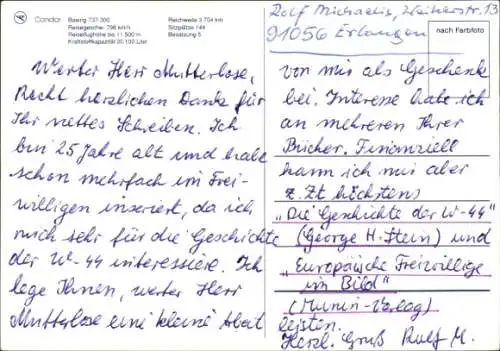 Condor
Boeing 737-300
Reisegeschw. 796 km/h
Reiseflughöhe bis 11 500 m
Kraftstoffkapazität 20 100 Liter
Reichweite 3 704 km
Sitzplätze 144
Besatzung 5
Rolf Michaelis, Weiherstr. 13
91056 Erlangen
nach Farbfoto
Werter Herr Mutterlose,
Recht herzlichen Dank für
Ihr nettes Schreiben. Ich
bin 25 Jahre alt und habe
schon mehrfach im Frei-
willigen inseriert, da ich
mich sehr für die Geschichte
der W-44 interessiere. Ich
lege Ihnen, werter Herr
Mutterlose eine kleine Arbeit
von mir als Geschenk
bei. Interesse habe ich
an mehreren Ihrer
Bücher. Finanziell
kann ich mir aber
z. Zt höchstens
"Die Geschichte der W-44"
(George H. Stein) und
"Europäische Freiwillige
im Bild"
(Munin-Verlag)
leisten.
Herzl. Gruß Rolf M.